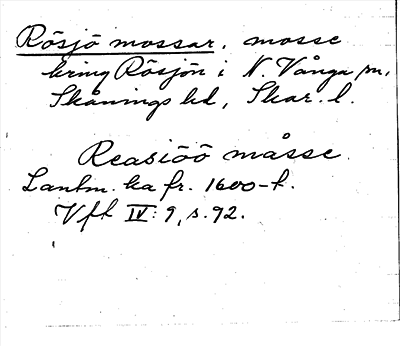 Rösjö mossar, mosse
kring Rösjön i N. Vånga sn,
Skånings hd, Skar. l.
Reasiöö måsse.
Lantm. ka fr. 1600-t.
Vft IV: 9, s. 92.